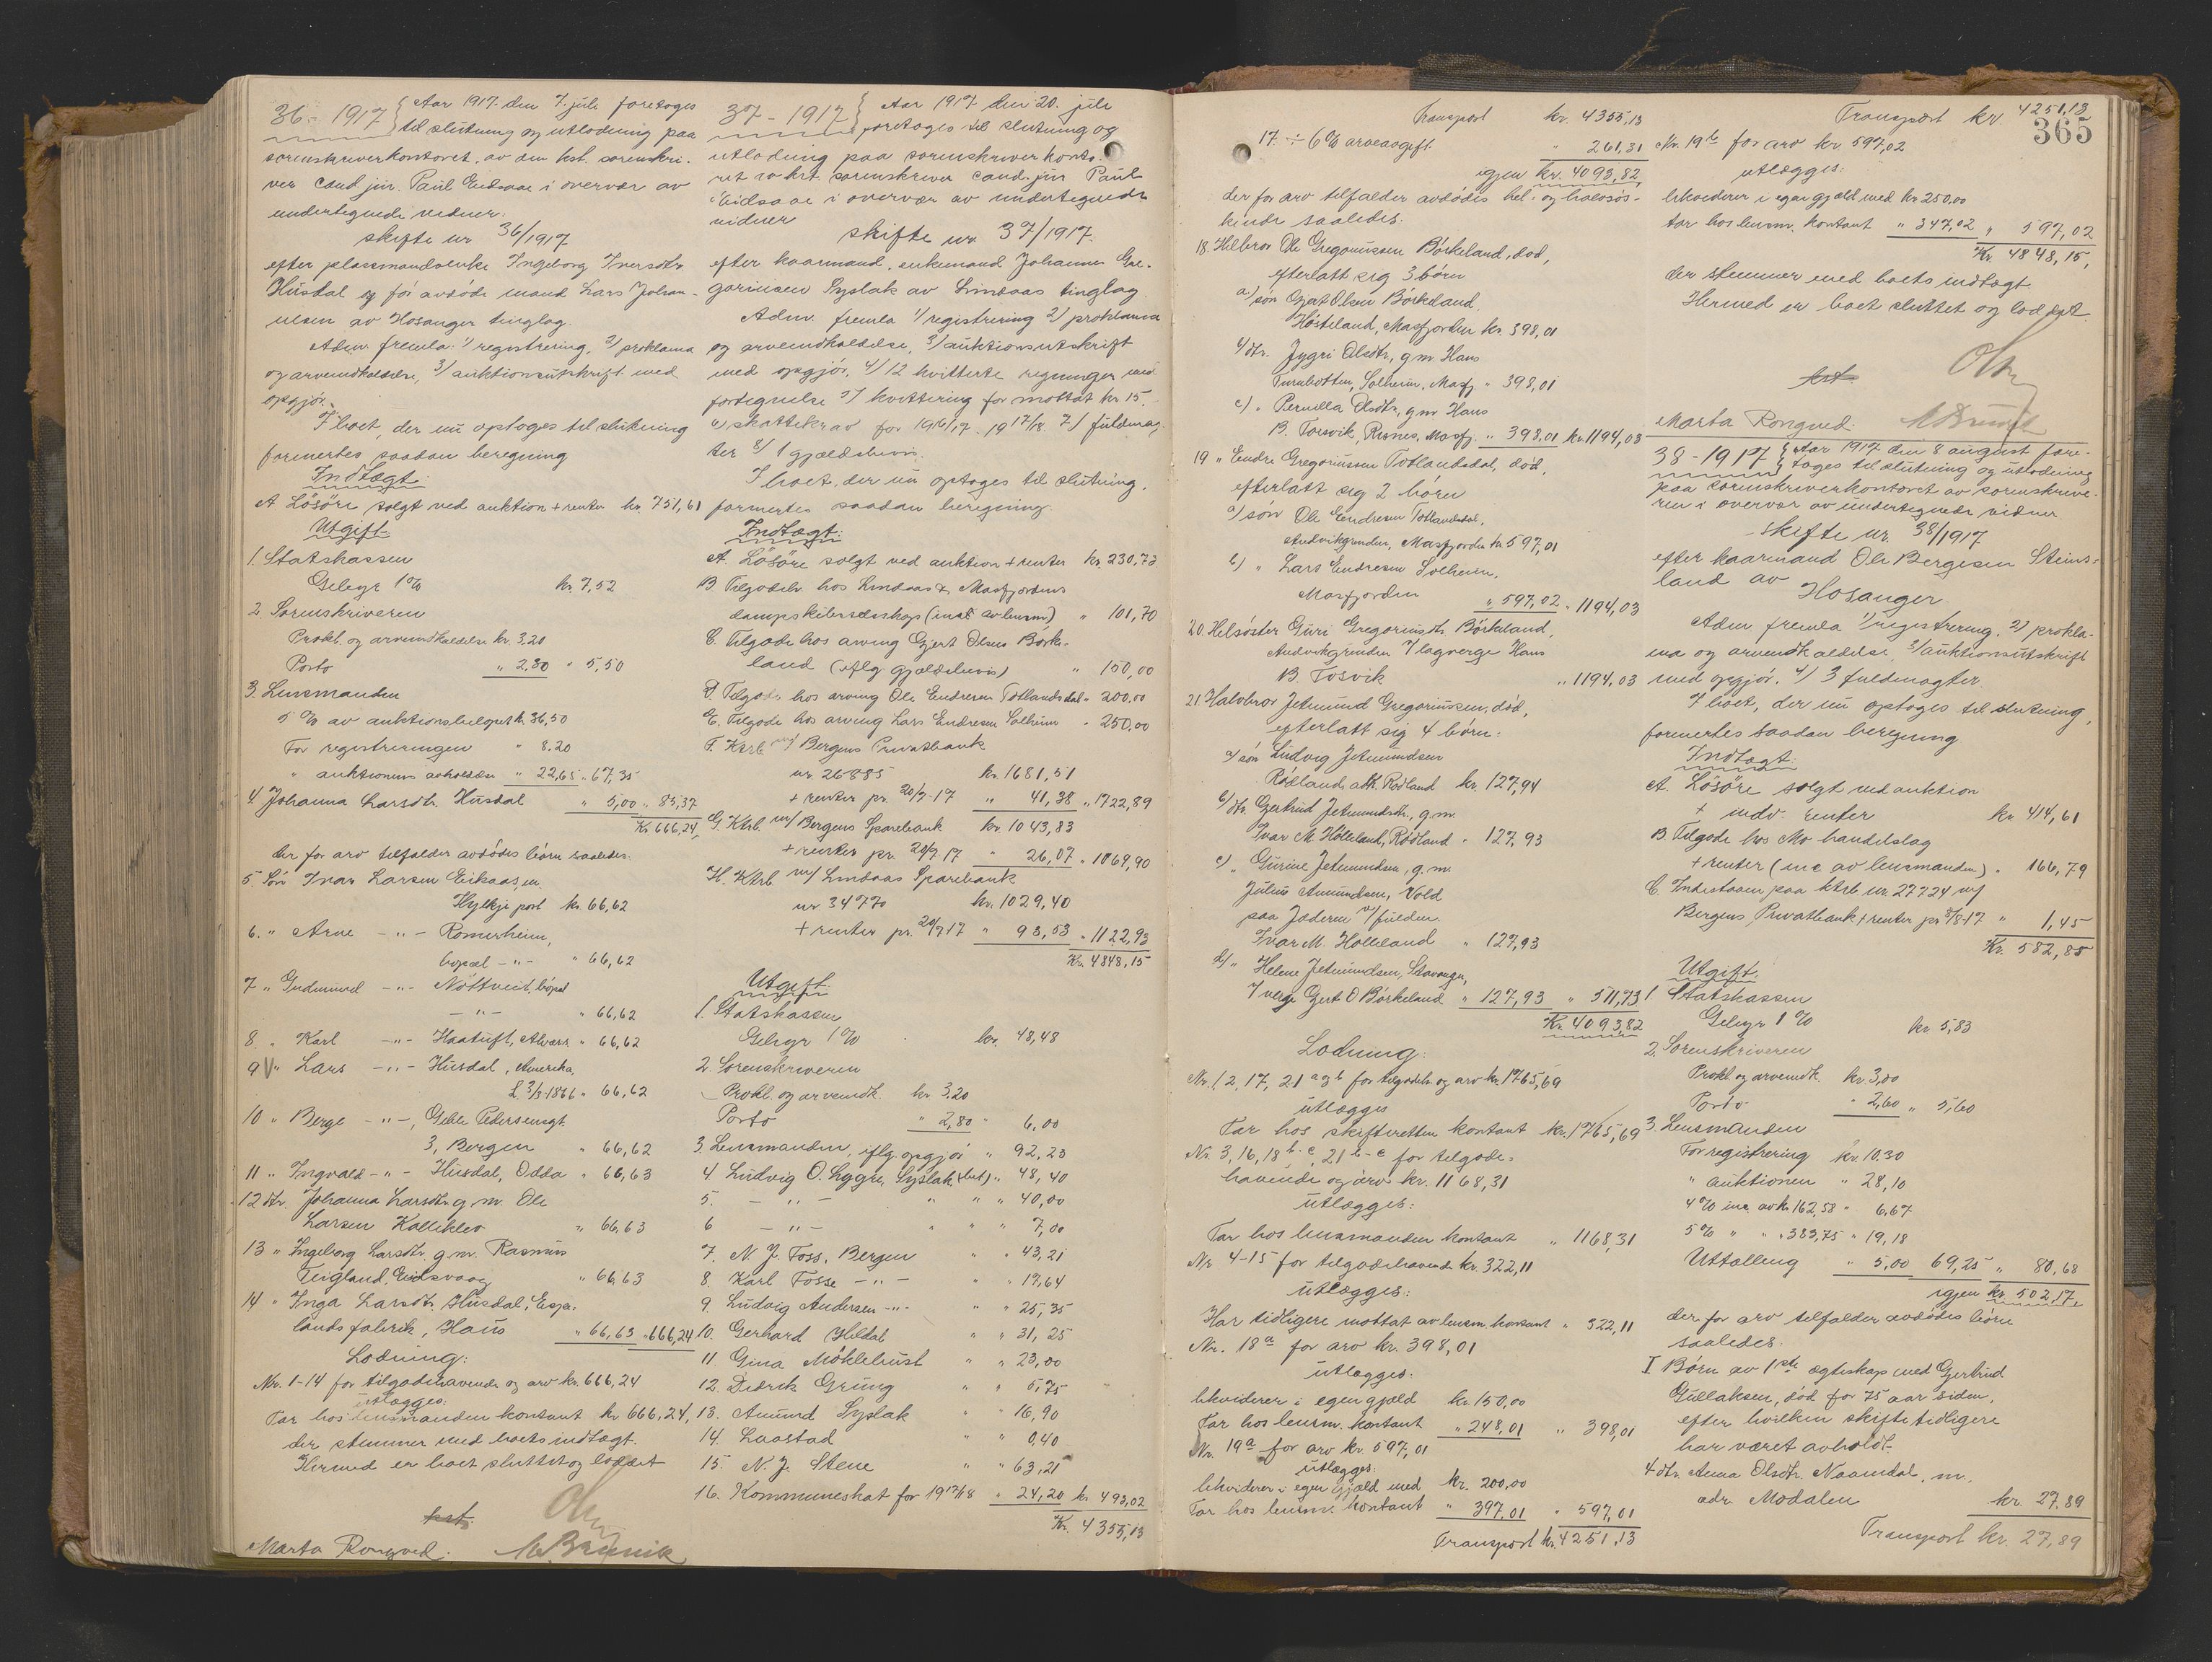 36 - 1917 { Aar 1917 den 7. juli foretoges
til slutning og utlodning paa
sorenskriverkontoret, av den kst. sorenskri-
ver cand jur. Paul Eidsaae i overvær av
undertegnede vidner.
skifte nr 36/1917
efter plassmandsenke Ingeborg Iversdtr.
Husdal og før avdøde mand Lars Johan-
nesen av Hosanger tinglag.
Adm. fremla 1/ registrering, 2/ proklama
og arveindkaldelse, 3/ auktionsutskrift med
opgjør.
I boet, der nu optoges til slutning
formertes saadan beregning
Indtægt:
A Lösöre solgt ved auktion + renter kr. 751,61
Utgift:
1. Statskassen
Gebyr 1% kr. 7,52
2. Sorenskriveren
Prokl. og arveindkaldelse kr. 3,20
Porto " 2,30 " 5,50
3. Lensmanden
5 % av auktionsbeløpet kr. 36,50
For registreringen " 8.20
" auktionens avholdelse " 22,65 " 67,35
4. Johanna Larsdtr. Husdal " 5,00 " 85,37
Kr. 666,24
der for arv tilfalder avdødes börn saaledes:
5. Sön Ivar Larsen Eikaas, m.
Hylkje post kr. 66,62
6. " Arne - " - Romerheim,
bopæl - " - " 66,62
7 " Gudmund - " - Nöttveit, bopæl
- " - " 66,62
8 " Karl - " - Haatuft, Alvær. " 66,62
9 " Lars - " - Husdal, Amerika,
f. 3/3-1866 " 66,62
10 " Berge - " -, Geble Pedersensgt
3, Bergen " 66,62
11 " Ingvald - " - Husdal, Odda " 66,63
12 dtr. Johanna Larsdtr. g.m. Ole
Larsen Kalleklev " 66,63
13 " Ingeborg Larsdtr. g.m. Rasmus
Teigland, Eidsvaag " 66,63
14 " Inga Larsdtr. Husdal, Espe-
lands fabrik, Haus " 66,63 " 666,24
Lodning:
Nr. 1-14 for tilgodehavende og arv kr. 666,24
utlægges:
Tar hos lensmanden kontant kr 666,24,
der stemmer med boets indtægt.
Hermed er boet sluttet og loddet
kst.
Marta Rongved.
37 - 1917 { Aar 1917 den 20. juli
foretoges til slutning og
utlodning paa sorenskriverkonto-
ret av kst. sorenskriver cand. jur Paul
Eidsaae i overvær av undertegnede
vidner
skifte nr. 37/1917.
efter kaarmand, enkemand Johannes Gre-
goriusen Syslak av Lindaas tinglag
Adm. fremla 1/ registrering 2/ proklama
og arveindkaldelse, 3/ auktionsutskrift
med opgjör, 4/ 12 kvitterte regninger med
fortegnelse 5/ kvittering for mottat kr 15.
6/ skattekrav for 1916/17 - 1917/18. 7/ fuldmag-
ter 8/ 1 gjældsbevis.
I boet, der nu optoges til slutning,
formertes saadan beregning.
Indtægt:
A. Lösöre solgt ved auktion + renter kr. 230,73
B Tilgodeh. hos Lindaas & Masfjordens
dampskibsselskap (inc av lensm) " 101,70
C. Tilgode hos arving Gjert Olsen Børke-
land (iflg gjældsbevis) " 150,00
D Tilgode hos arving Ole Endresen Totlandsdal " 200,00
E. Tilgode hos arving Lars Endresen Solheim " 250,00
F. Ktrb m/ Bergens Privatbank
nr. 26885 kr. 1681,51
+ renter pr. 20/7-17 " 41,38 " 1722,89
G. Ktrb. m/ Bergens Sparebank kr. 1043,83
+ renter pr. 20/7-17 " 26,07 " 1069,90
H. Ktrb m/ Lindaas Sparebank
nr 34770 kr. 1029,40
+ renter pr. 20/7 17 " 93,53 " 1122,93
Kr. 4848,15
Utgift:
1. Statskassen
Gebyr 1% kr. 48,48
2. Sorenskriveren
Prokl. og arveindk. kr. 3,20
Porto " 2,80 " 6,00
3. Lensmanden, iflg. opgjör " 92,23
4. Ludvig O. Lygre, Syslak " 48,40
5. - " - " " 40,00
6 - " - " " 7,00
7. N. J. Foss, Bergen " " 43,21
8. Karl Fosse - " - " " 19,64
9. Ludvig Andersen - " - " " 25,35
10. Gerhard Hildal " " 31,25
11. Gina Møklebust " " 23,00
12. Didrik Grung " " 5,75
13. Amund Syslak " " 16,90
14. Laastad " " 0,40
15. N. J. Stene " " 63,21
16. Kommuneskat for 1917/18 " 24,20 kr 493,02
Kr. 4355,13
Transport kr. 4355,13
17 ÷ 6 % arveavgift " 261,31
igjen kr. 4093,82,
der for arv tilfalder avdödes hel- og halvsös-
kende saaledes:
18. Helbror Ole Gregoriussen Börkeland, död,
efterlatt sig 3 börn
a/ sön Gjert Olsen Börkeland
Hösteland, Masfjorden kr. 398,01
b/ dtr. Jygri Olsdtr., g.m Hans
Furubotten, Solheim, Masfj. " 398,01
c/ " Pernilla Olsdtr, g.m Hans
B. Torsvik, Risnes, Masfj. " 398,01 kr. 1194,03
19 " Endre Gregoriussen Totlandsdal, død,
efterlatt sig 2 börn
a/ sön Ole Endresen Totlandsdal,
Andvikgrenden, Masfjorden kr. 597,01
b/ " Lars Endresen Solheim,
Masfjorden " 597,02 " 1194,03
20. Helsöster Guri Gregoriusdtr. Börkeland,
Andvikgrenden 7/ lagverge Hans
B. Tosvik " 1194,03
21. Halvbror Jetmund Gregoriussen, död,
efterlatt sig 4 börn:
a/ sön Ludvig Jetmundsen
Rödland, adr. Rödland kr. 127,94
b/ dtr. Gertrud Jetmundsdtr., g.m.
Ivar M. Hölleland, Rödland " 127,93
c/ " Gurine Jetmundsen, g.m.
Julius Amundsen, Vold
paa Jæderen v/ fuldm.
Ivar M. Holleland " 127,93
d/ " Helene Jetmundsen, Stavanger,
7 verge Gert O Börkeland " 127,93 " 511,73
Kr. 4093,82
Lodning:
Nr. 1, 2, 17, 21 a og b for tilgodeh. og arv kr. 1765,69
utlægges
Tar hos skifteretten kontant kr. 1765,69
Nr. 3, 16, 18 b-c, 21 b-c for tilgode-
havende og arv kr. 1168,31
utlægges:
Tar hos lensmanden kontant " 1168,31
Nr 4-15 for tilgodehavende kr. 322,11
utlægges:
Har tidligere mottat av lensm. kontant " 322,11
Nr. 18 a for arv kr. 398,01
utlægges:
likviderer i egen gjæld kr. 150,00
Tar hos lensm. kontant " 248,01 " 398,01
Nr. 19 a for arv kr. 597,01
utlægges:
likviderer i egen gjæld med kr. 200,00
Tar hos lensm. kontant " 397,01 " 597,01
Transport kr. 4251,13
Transport kr 4251,13
365
Nr. 19 b for arv kr. 597,02
utlægges:
likviderer i egen gjæld med kr 250,00
tar hos lensm. kontant " 347,02 " 597,02
Kr. 4848,15,
der stemmer med boets indtægt
Hermed er boet sluttet og loddet
kst.
Marta Rongved.
38 - 1917 { Aar 1917 den 8 august fore-
toges til slutning og utlodning
paa sorenskriverkontoret av sorenskrive-
ren i overvær av undertegnede vidner
skifte nr. 38/1917
efter kaarmand Ole Bergesen Steins-
land av Hosanger
Adm fremla 1/ registrering, 2/ prokla-
ma og arveindkaldelse, 3/ auktionsutskrift
med opgjör. 4/ 3 fuldmagter
I boet, der nu optoges til slutning,
formertes saadan beregning
Indtægt:
A. Lösöre solgt ved auktion
+ indv. renter kr 414,61
B Tilgode hos Mo handelslag
+ renter (inc av lensmanden) " 166,79
C. Indestaaen paa ktrb. nr. 27224 m/
Bergens Privatbank + renter pr 8/8-17 " 1,45
Kr. 582,85
Utgift:
1. Statskassen
Gebyr 1 % kr 5,83
2. Sorenskriveren
Prokl og arveindk. kr. 3,00
Porto " 2,60 " 5,60
3. Lensmanden
For registrering kr. 10.30
" auktionen " 28,10
4 % inc. av kr. 162,58 " 6,67
5 % " " " 383,75 " 19,18
Uttælling " 5,00 69,25 " 80,68
igjen kr. 502,17,
der for arv tilfalder avdödes börn
saaledes:
I Börn av 1ste egteskap med Gjertrud
Gullaksen, død for 75 aar siden,
efter hvilken skifte tidligere
har været avholdt.
4 dtr. Anna Olsdtr. Naamdal, m.
adr. Modalen kr. 27,89
Transport kr. 27,89